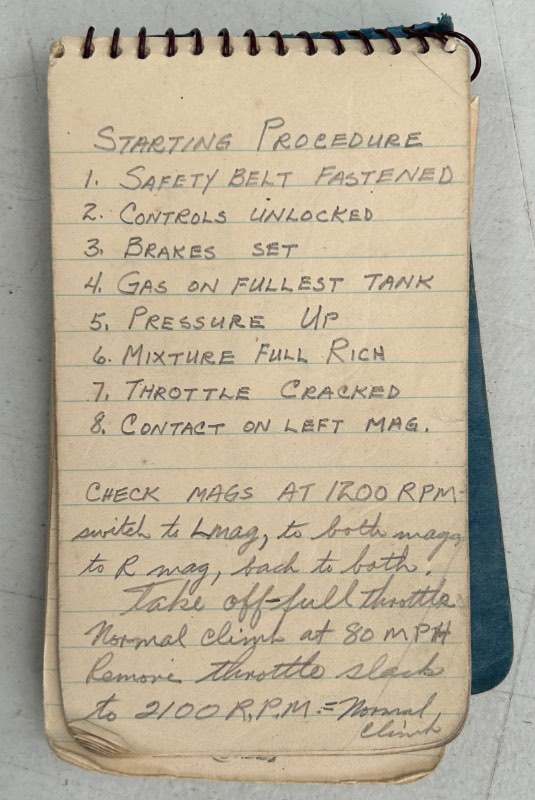 STARTING PROCEDURE
1. SAFETY BELT FASTENED
2. CONTROLS UNLOCKED
3. BRAKES SET
4. GAS ON FULLEST TANK
5. PRESSURE UP
6. MIXTURE FULL RICH
7. THROTTLE CRACKED
8. CONTACT ON LEFT MAG.
CHECK MAGS AT 1200 RPM-
switch to L mag, to both mags,
to R mag, back to both.
Take off-full throttle
Normal climb at 80 MPH
Remove throttle slack
to 2100 R.P.M. = Normal
climb